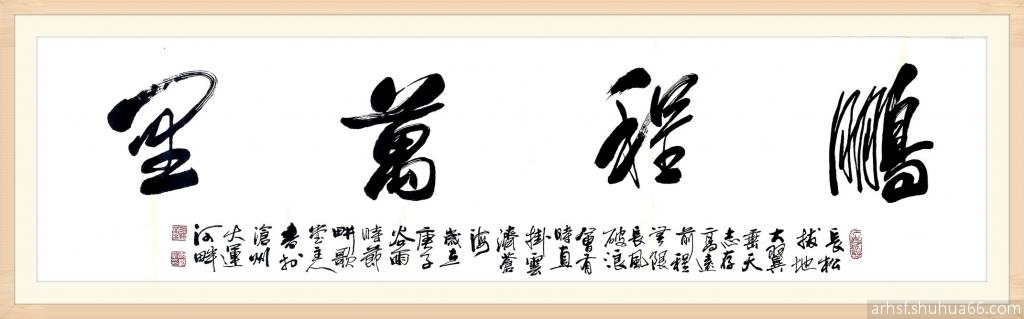 鵬程萬里
長松
拔地
大翼
垂天
志存
高遠
前程
無限
長風
破浪
會有
時直
掛雲
濟蒼
海
歲在
庚子
谷雨
時節
畊歌
堂主人
書於
滄州
大運
河畔
arhsf.shuhua66.com